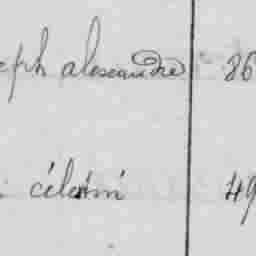 eph alexandre 86
célestin 49